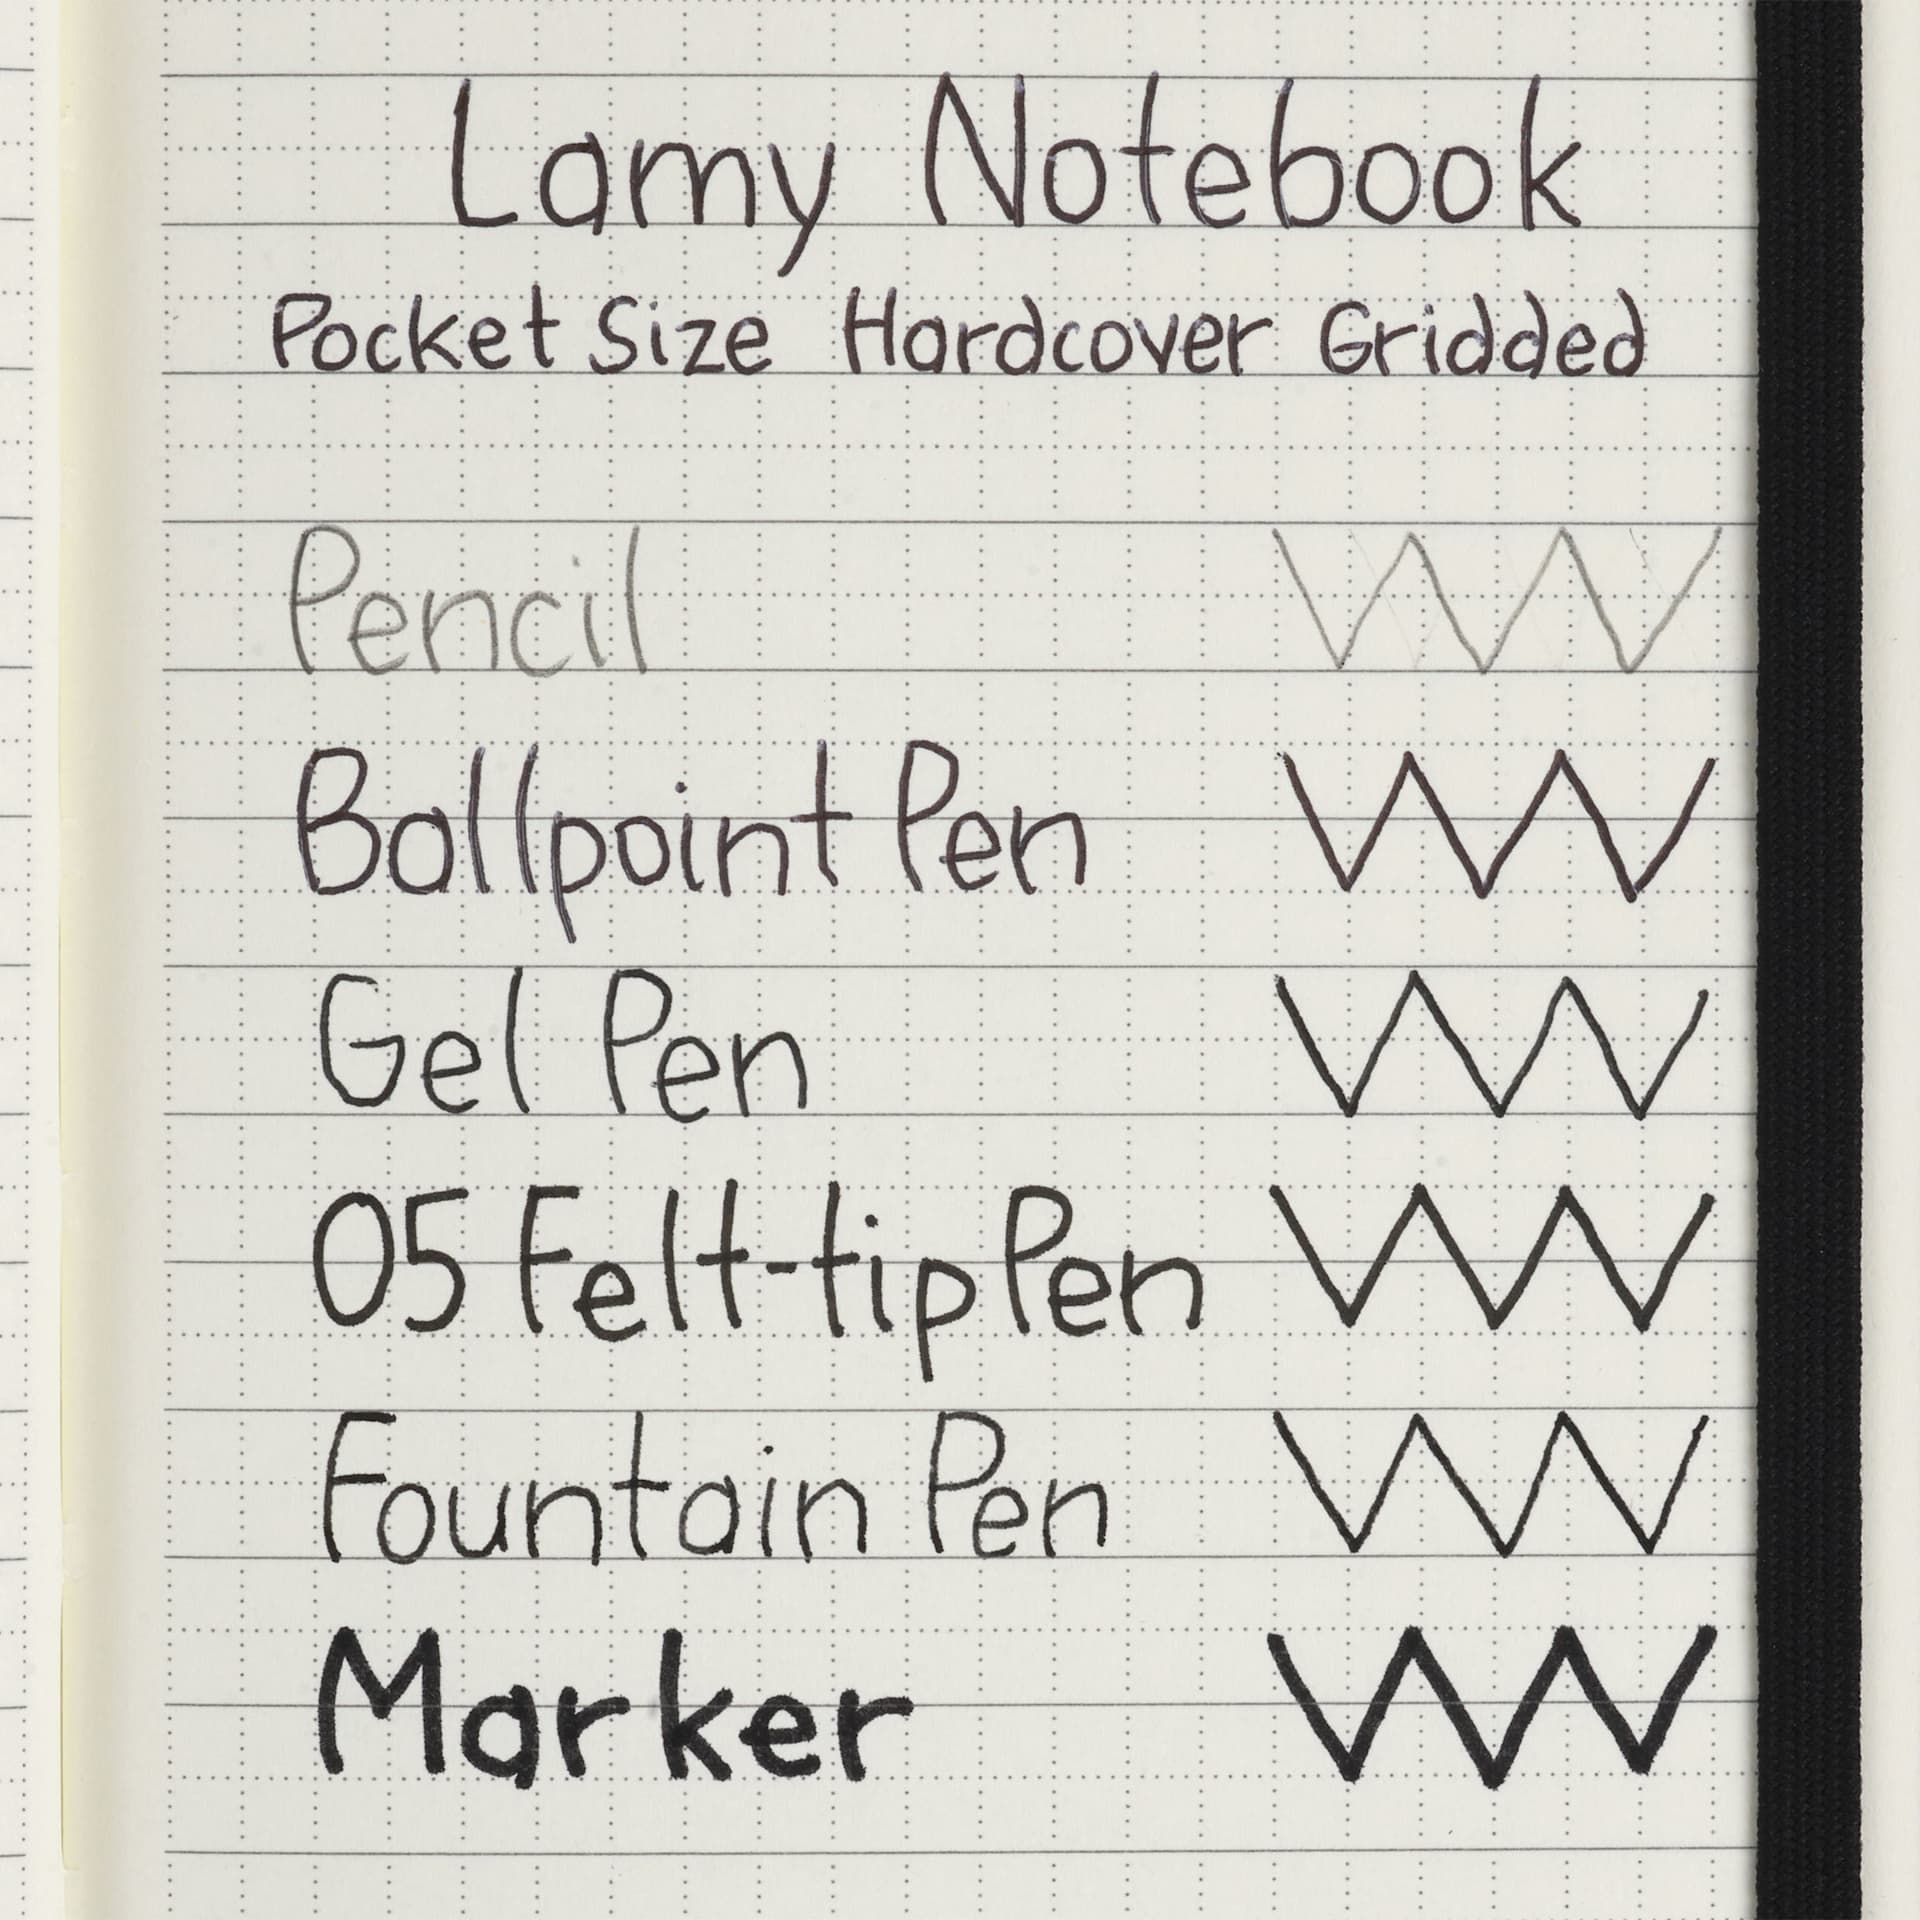 Lamy Notebook
Pocket Size Hardcover Gridded
Pencil
Ballpoint Pen
Gel Pen
05 Felt-tip Pen
Fountain Pen
Marker